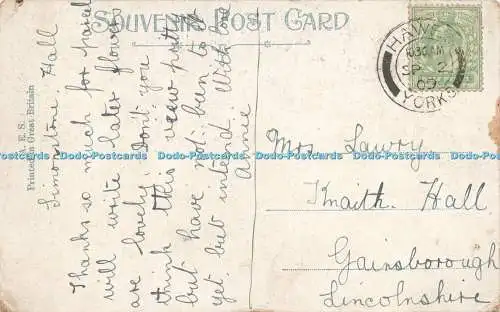 SOUVENIR POST CARD
A. E. S.
Printed in Great Britain
Simonstone Hall
Thanks so much for parcel
will write later flowers
are lovely. Don't you
think this view pretty
but have not been to it
yet but intend. With love
Annie
HAWES
10.30 AM
SP 2
YORKS
Mrs Lawry
Knaith Hall
Gainsborough
Lincolnshire
Dodo-Postcards Dodo-Postcards Dodo-Postcards Dodo-Postcards Dodo-Postcards Dodo-Postcards